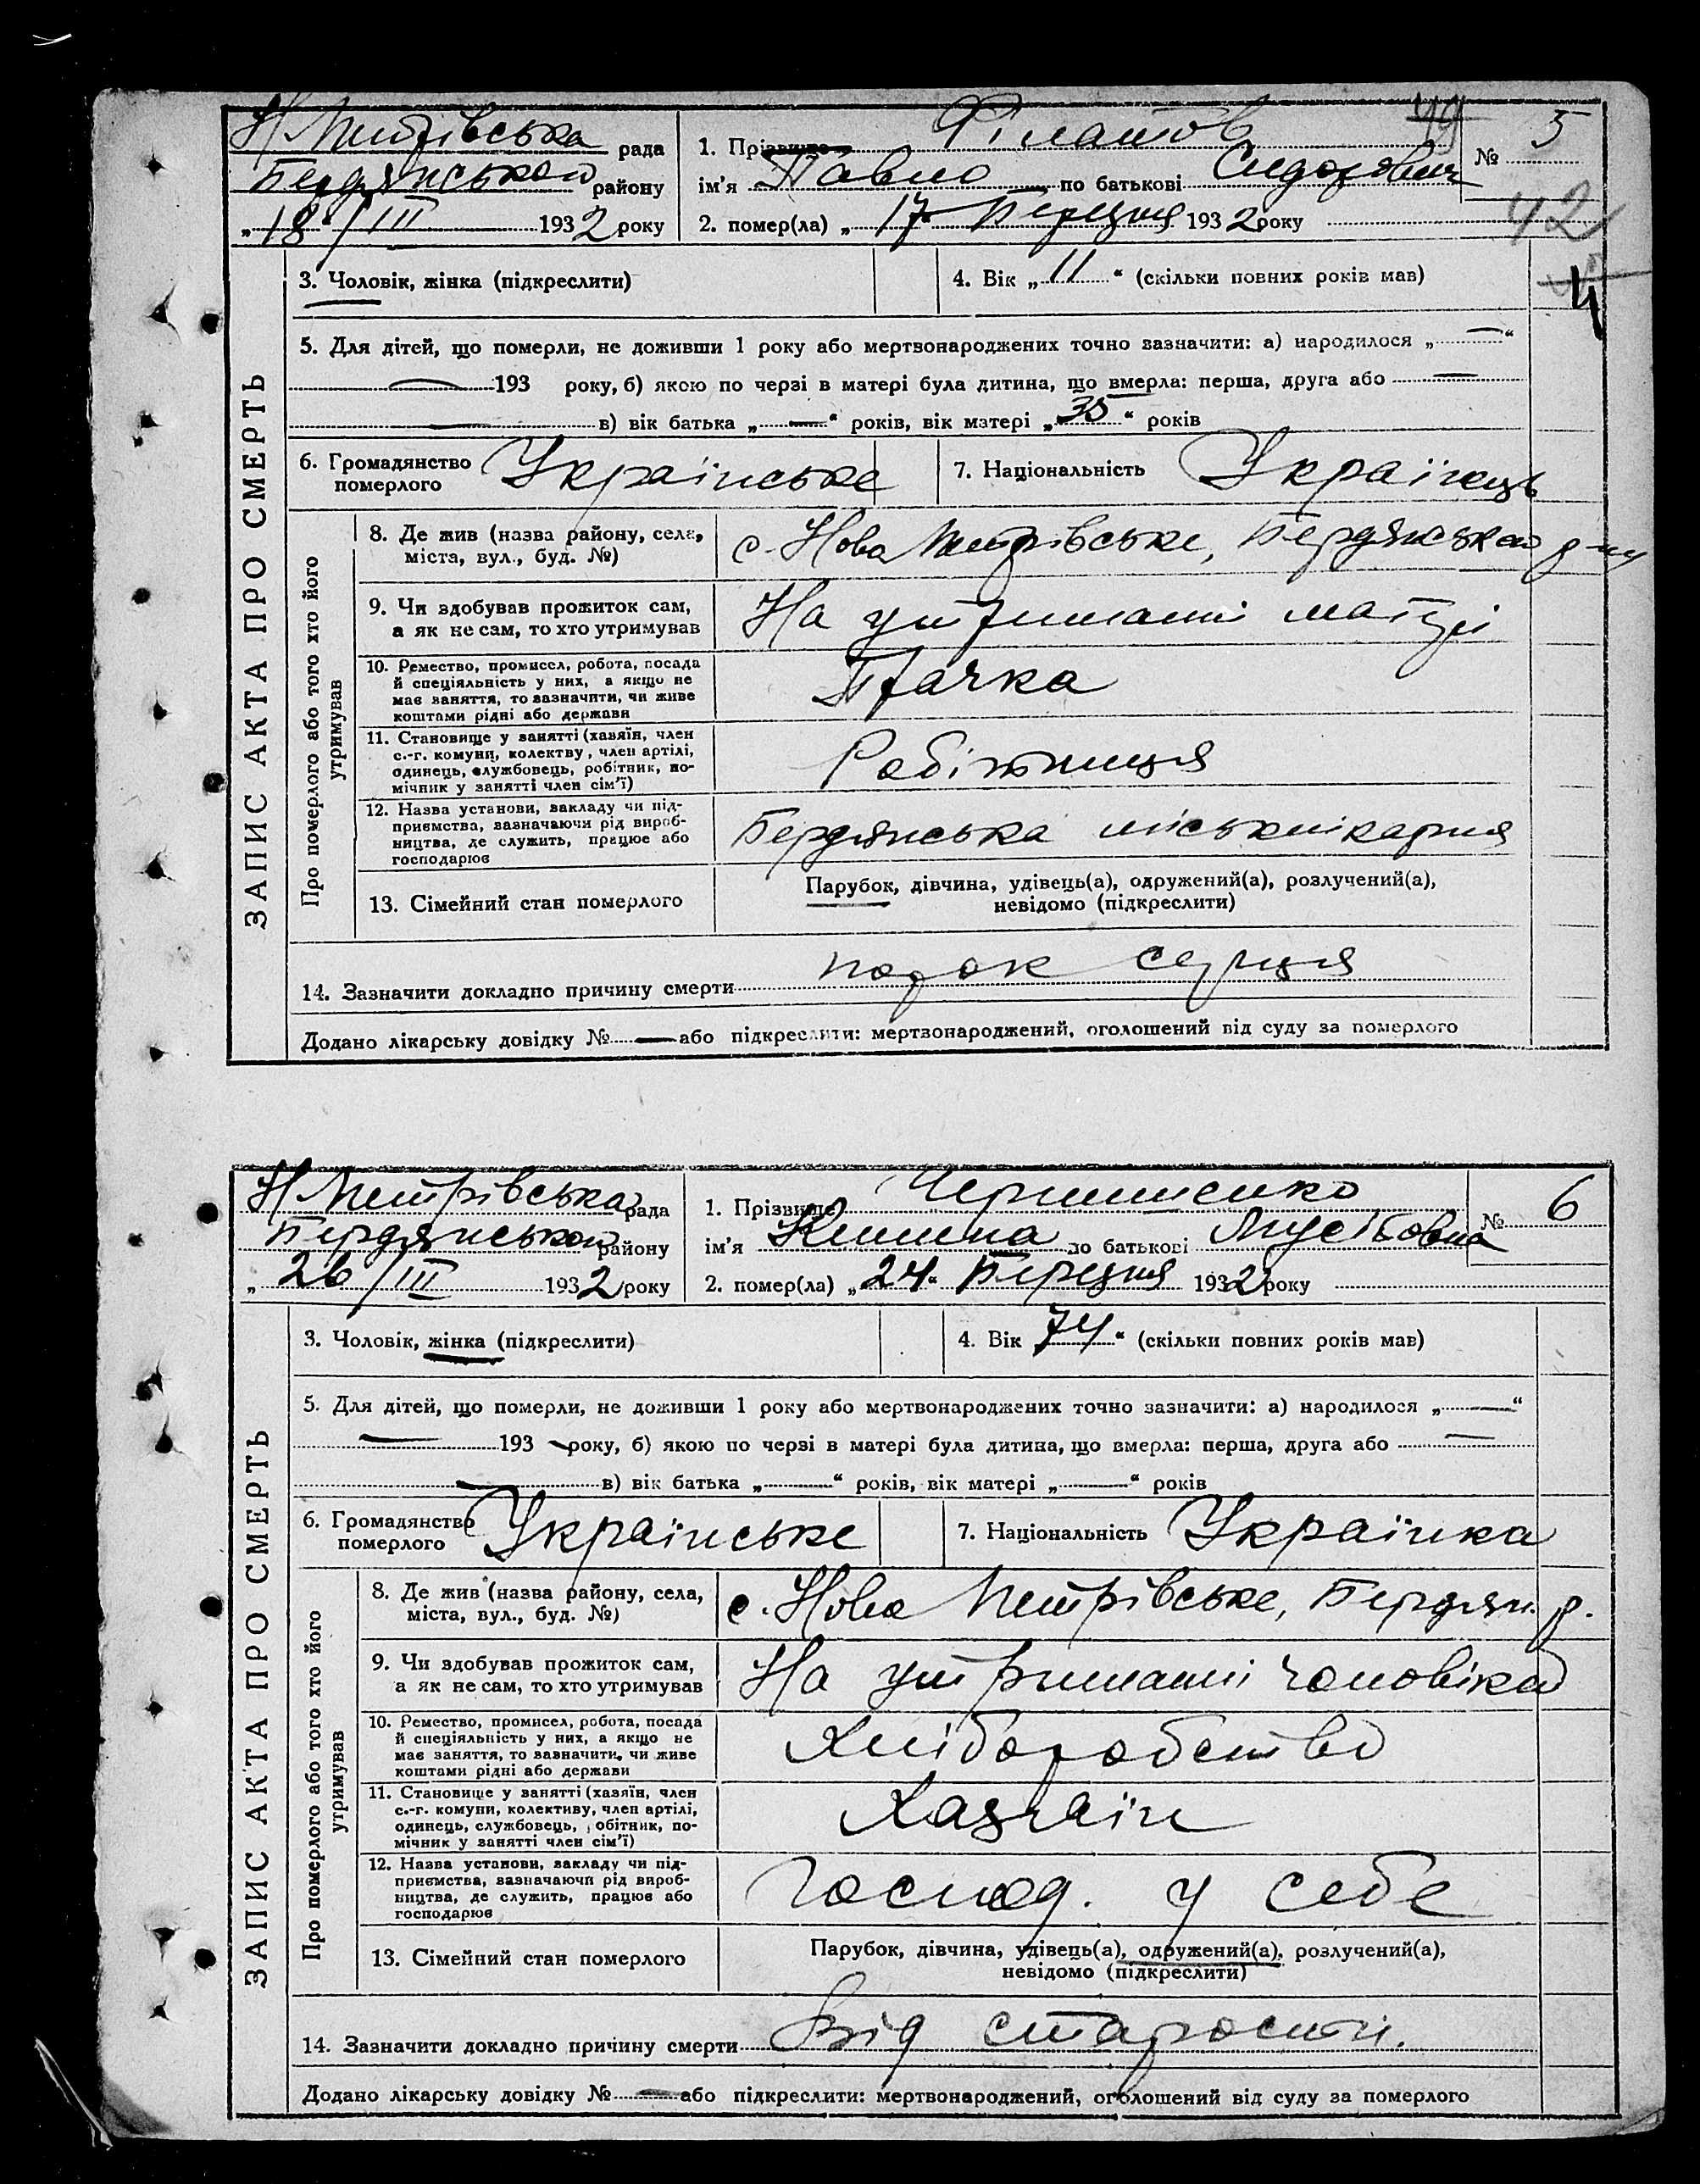 Н Петрівська рада
Бердянського району
„18/III 1932 року
1. Прізвище Філатов
ім'я Павло по батькові Сидорович
2. помер(ла) „17" Березня 1932 року
№ 5
49
42
4
ЗАПИС АКТА ПРО СМЕРТЬ
3. Чоловік, жінка (підкреслити)
4. Вік „11" (скільки повних років мав)
5. Для дітей, що померли, не доживши 1 року або мертвонароджених точно зазначити: а) народилося „—"
— 193 року, б) якою по черзі в матері була дитина, що вмерла: перша, друга або —
— в) вік батька „—" років, вік матері „35" років
6. Громадянство померлого Українське
7. Національність Українець
Про померлого або того хто його утримував
8. Де жив (назва району, села,
міста, вул., буд. №)
с. Ново Петрівське, Бердянського р-ну
9. Чи здобував прожиток сам,
а як не сам, то хто утримував
На утриманні матері
10. Ремество, промисел, робота, посада
й спеціяльність у них, а якщо не
має заняття, то зазначити, чи живе
коштами рідні або держави
Прачка
11. Становище у занятті (хазяїн, член
с.-г. комуни, колектву, член артілі,
одинець, службовець, робітник, по-
мічник у занятті член сім'ї)
Робітниця
12. Назва установи, закладу чи під-
приємства, зазначаючи рід вироб-
ництва, де служить, працює або
господарює
Бердянська міськлікарня
13. Сімейний стан померлого
Парубок, дівчина, удівець(а), одружений(а), розлучений(а),
невідомо (підкреслити)
14. Зазначити докладно причину смерти порок серця
Додано лікарську довідку № — або підкреслити: мертвонароджений, оголошений від суду за померлого
Н Петрівська рада
Бердянського району
„26/III 1932 року
1. Прізвище
ім'я по батькові
2. помер(ла) „24" Березня 1932 року
№ 6
ЗАПИС АКТА ПРО СМЕРТЬ
3. Чоловік, жінка (підкреслити)
4. Вік 74" (скільки повних років мав)
5. Для дітей, що померли, не доживши 1 року або мертвонароджених точно зазначити: а) народилося „—"
— 193 року, б) якою по черзі в матері була дитина, що вмерла: перша, друга або —
— в) вік батька „—" років, вік матері „—" років
6. Громадянство померлого Українське
7. Національність Українка
Про померлого або того хто його утримував
8. Де жив (назва району, села,
міста, вул., буд. №)
с. Ново Петрівське, Бердян. р.
9. Чи здобував прожиток сам,
а як не сам, то хто утримував
На утриманні чоловіка
10. Ремество, промисел, робота, посада
й спеціяльність у них, а якщо не
має заняття, то зазначити, чи живе
коштами рідні або держави
Хліборобство
11. Становище у занятті (хазяїн, член
с.-г. комуни, колективу, член артілі,
одинець, службовець, робітник, по-
мічник у занятті член сім'ї)
Хазяїн
12. Назва установи, закладу чи під-
приємства, зазначаючи рід вироб-
ництва, де служить, працює або
господарює
Господ. у себе
13. Сімейний стан померлого
Парубок, дівчина, удівець(а), одружений(а), розлучений(а),
невідомо (підкреслити)
14. Зазначити докладно причину смерти Від старости.
Додано лікарську довідку № — або підкреслити: мертвонароджений, оголошений від суду за померлого